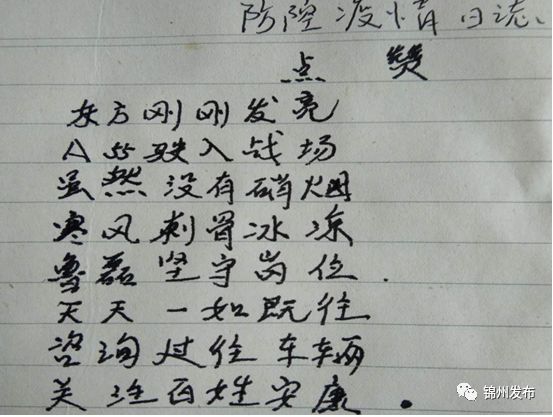 防控疫情日志、
点 赞
东方刚刚发亮
A55驶入战场
虽然没有硝烟
寒风刺骨冰冻
鲁磊坚守岗位.
天天一如既往
咨询过往车辆
关注百姓安康.
锦州发布